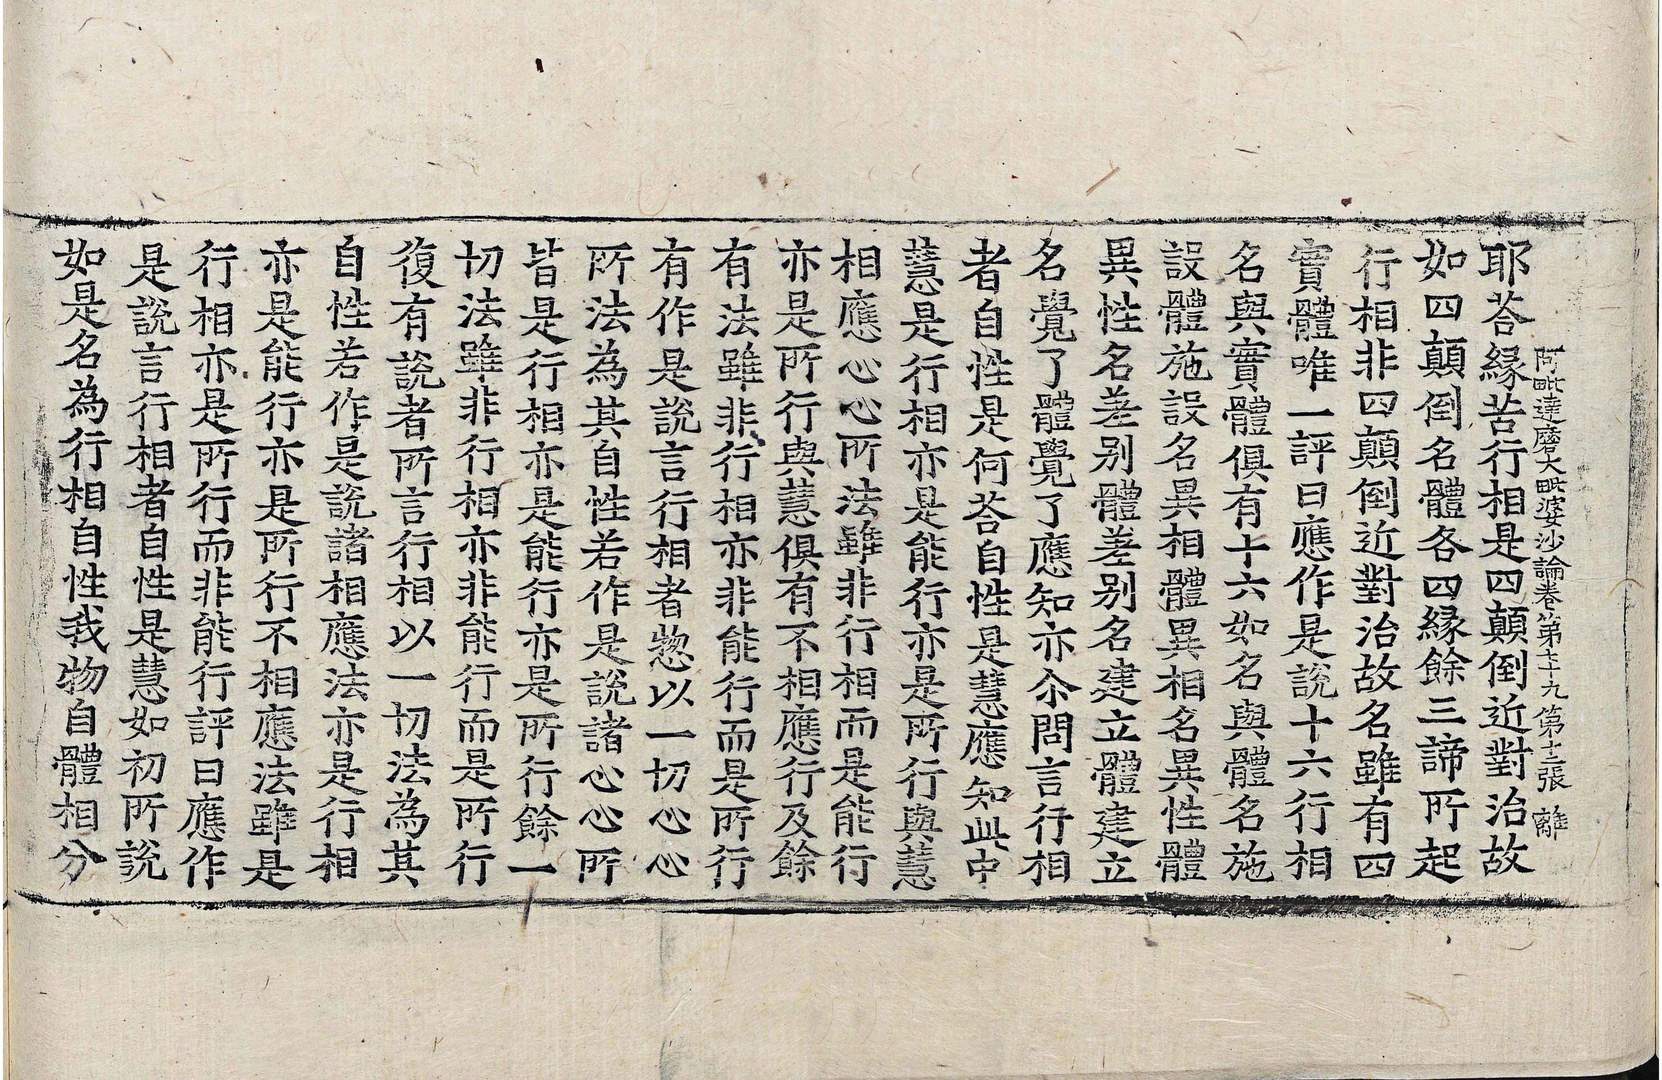 阿毗達磨大毗婆沙論卷第七十九 第十二張 離
耶荅緣苦行相是四顛倒近對治故
如四顛倒名體各四緣餘三諦所起
行相非四顛倒近對治故名雖有四
實體唯一評曰應作是說十六行相
名與實體俱有十六如名與體名施
設體施設名異相體異相名異性體
異性名差别體差别名建立體建立
名覺了體覺了應知亦尒問言行相
者自性是何荅自性是慧應知此中
慧是行相亦是能行亦是所行與慧
相應心心所法雖非行相而是能行
亦是所行與慧俱有不相應行及餘
有法雖非行相亦非能行而是所行
有作是說言行相者惣以一切心心
所法為其自性若作是說諸心心所
皆是行相亦是能行亦是所行餘一
切法雖非行相亦非能行而是所行
復有說者所言行相以一切法為其
自性若作是說諸相應法亦是行相
亦是能行亦是所行不相應法雖是
行相亦是所行而非能行評曰應作
是說言行相者自性是慧如初所說
如是名為行相自性我物自體相分